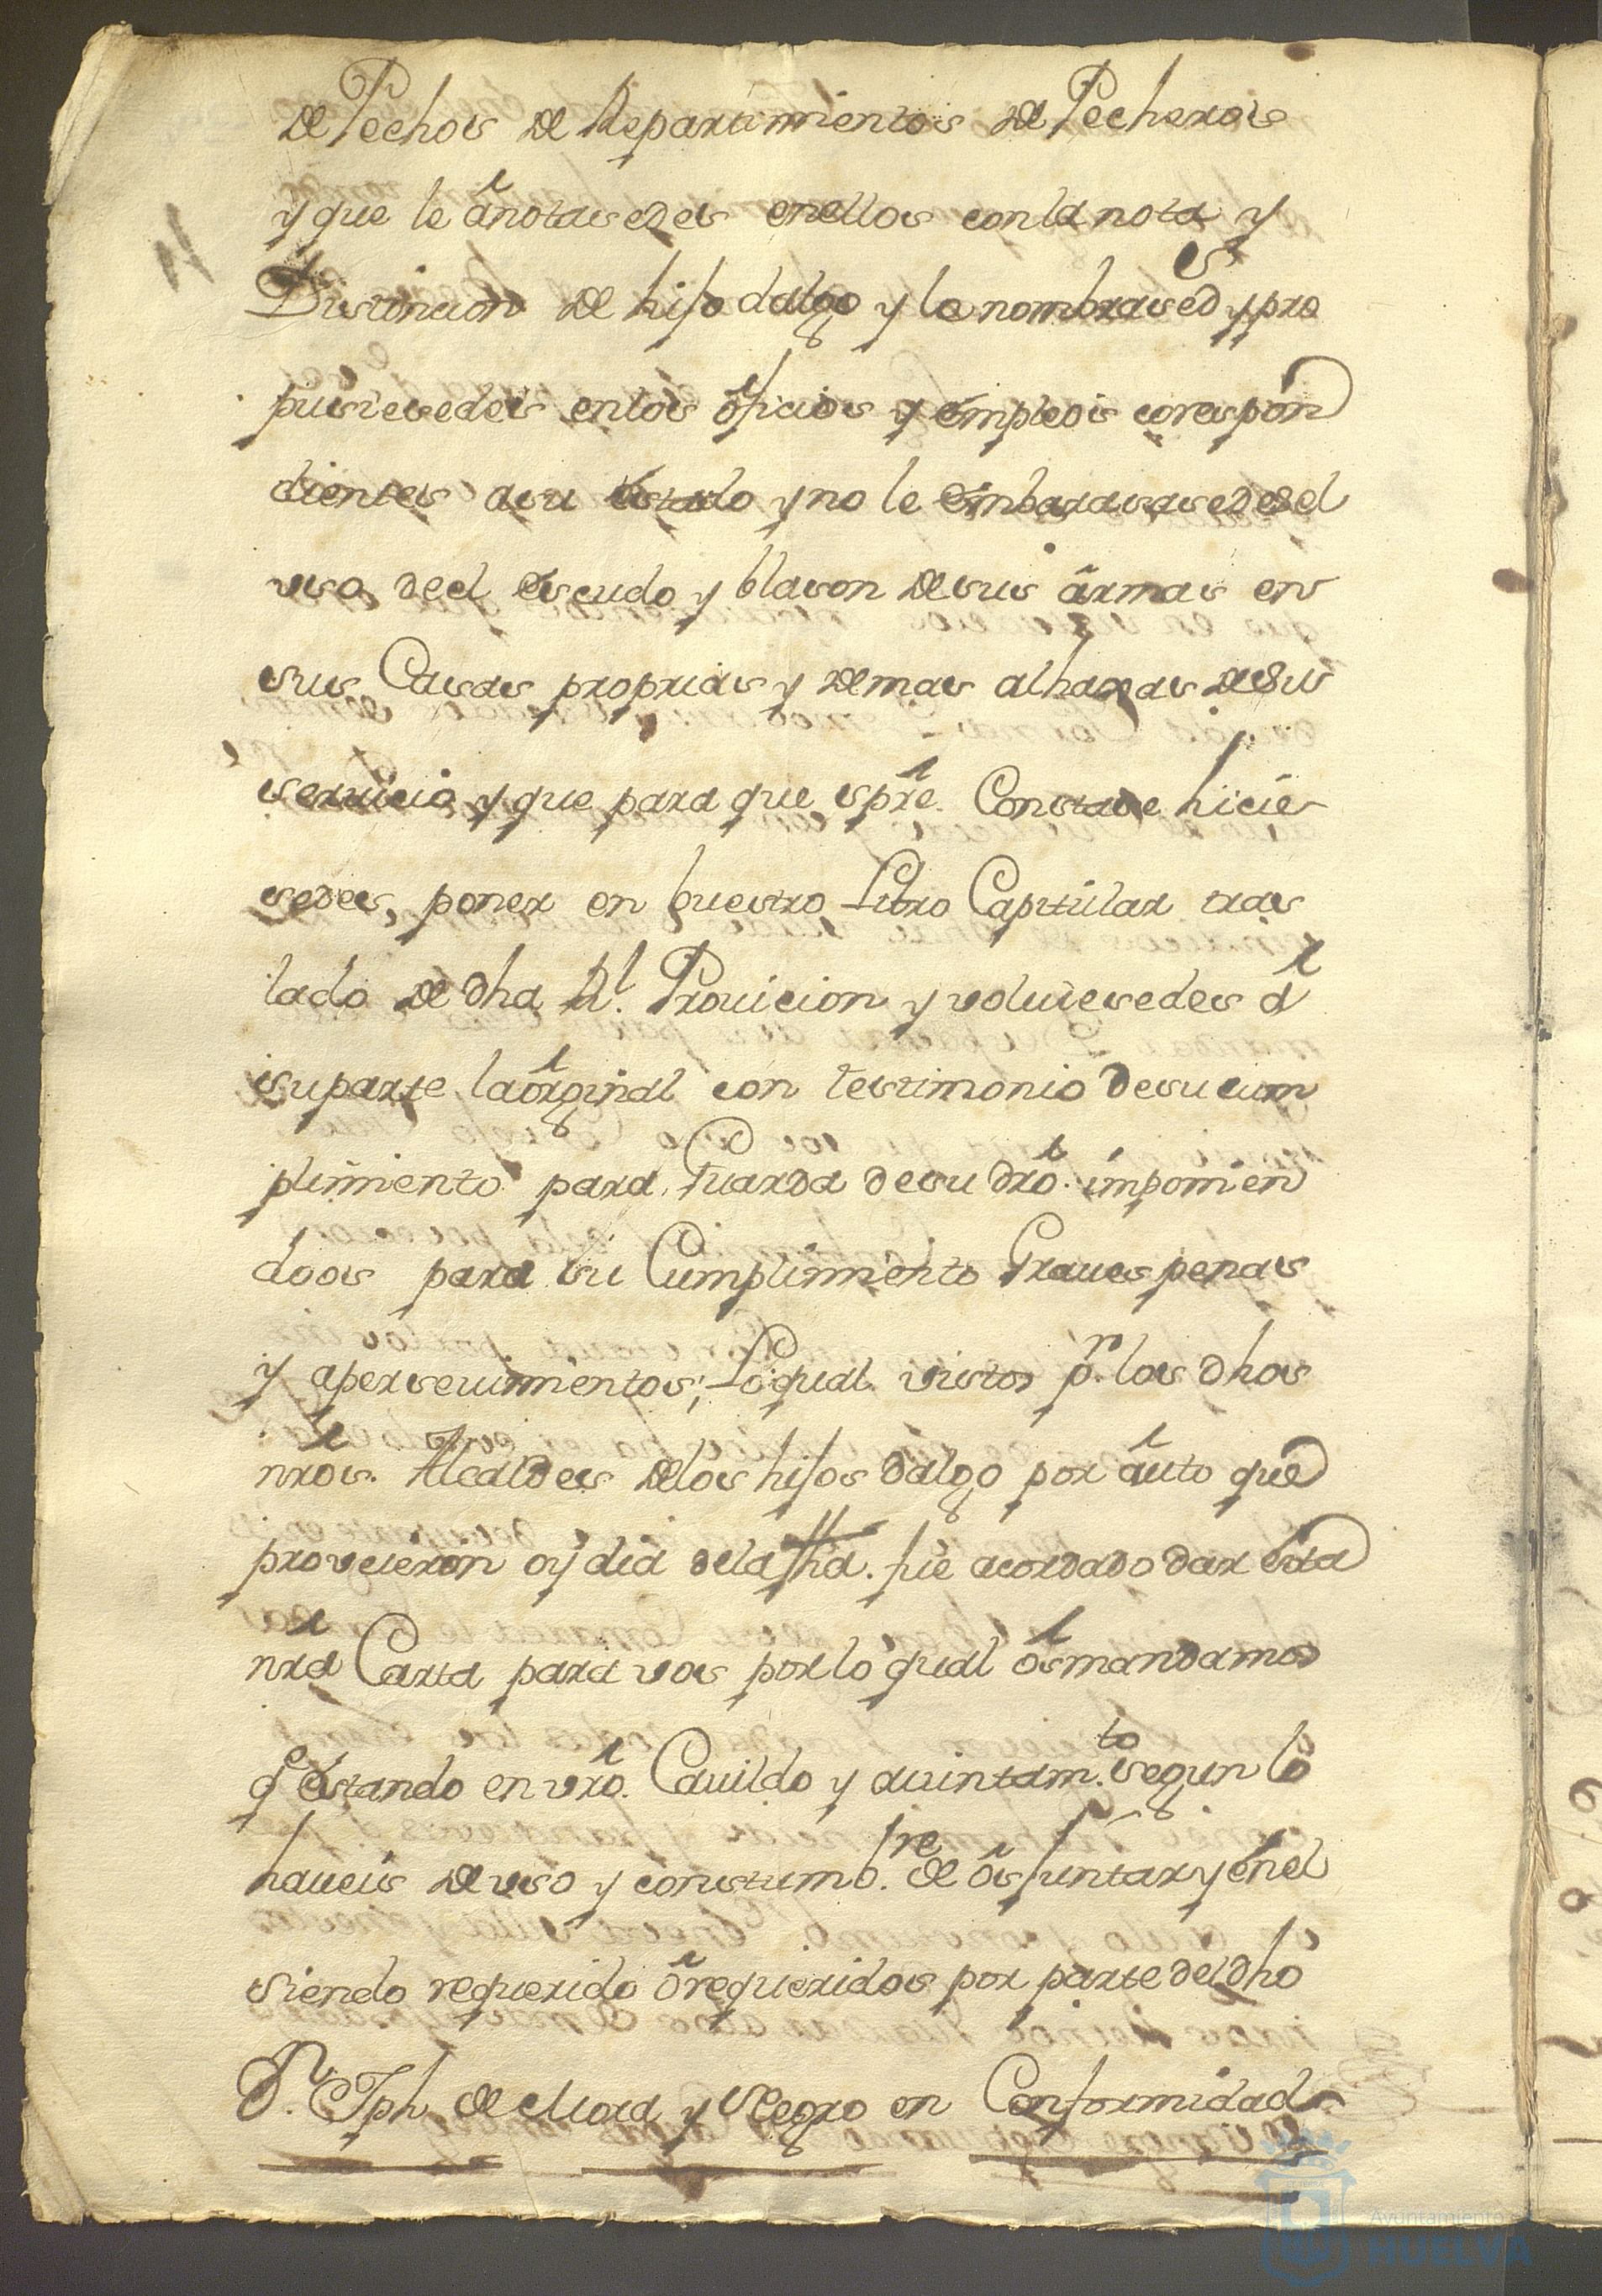 de Pechos de Repartimientos de Pecheros
y que le anotasedes enellos conla nota y
Distincion de hijo dalgo y lo nombrased^s y pro
pusiesedes enlos oficios y empleos corespon
dientes asu estado y no le embarasasedes el
uso de el escudo y blason desus armas en
sus Casas proprias y demas alhaxas desu
seruicio y que para que spre. Constase hicie
sedes, poner en buestro Libro Capitular tras
lado de dha Rl. Prouicion y voluiesedes a
suparte laorginal con testimonio desu cum
plimiento para Guarda desu dro. imponien
doos para su Cumplimiento Graues penas
y aperseuimientos; Loqual visto p.r los dhos
nros. Alcaldes delos hijos dalgo por auto que
proveieron oy dia dela fha. fue acordado dar esta
nra Carta para vos por lo qual osmandamos
q.e estando en vro. Cauildo y auintam.to segun lo
haueis de uso y constumb.re de os juntar y enel
siendo requerido o requeridos por parte del dho
D.n Jph de Mora y Negro en Conformidad
Ayuntamiento
HUELVA